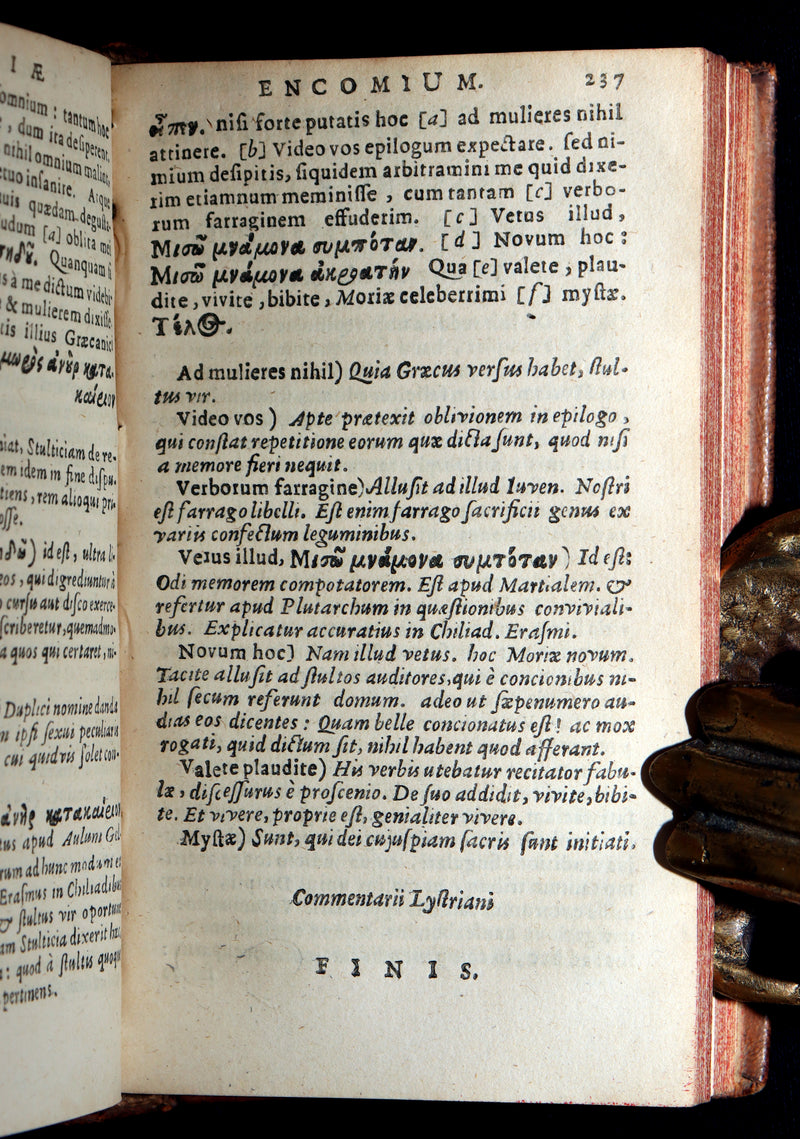 I Æ
omnium : tantum hoc
, dum ita desiperent,
nihil omnium malit,
tuo insanire. Atque
quis quædam deguli
udum [a] oblita mei
Quanquam si
s à me dictum videbi-
& mulierem dixisse
tis illius Græcanici
κατα.
καίειον
iat, Stulticiam de re.
em idem in fine dispu.
tiens, rem alioqui pri.
osse.
id est, ultra li
eos, qui digrediuntur à
cursu aut disco exerce.
scriberetur, quemadmo.
a quos qui certaret, ni.
Duplici nomine danda
n ipsi sexui peculiare
cui quidvis solet con.
ἀνὴρ κατακαίειον
us apud Aulum Gel
rum ad hunc modum et
Erasmus in Chiliadibus
& stultus vir oportu
am Stulticia dixerit hu
: quod à stultis quoque
pertinens.
ENCOMIUM. 237
εἶπεν. nisi forte putatis hoc [a] ad mulieres nihil
attinere. [b] Video vos epilogum expectare. sed ni-
mium desipitis, siquidem arbitramini me quid dixe-
rim etiamnum meminisse , cum tantam [c] verbo-
rum farraginem effuderim. [c] Vetus illud,
Μισῶ μνάμονα συμπόταν. [d] Novum hoc :
Μισῶ μνάμονα ἀκροατήν Qua [e] valete , plau-
dite , vivite , bibite , Moriæ celeberrimi [f] mystæ.
Τέλος.
Ad mulieres nihil) Quia Græcus versus habet, stul-
tus vir.
Video vos ) Apte prætexit oblivionem in epilogo ,
qui constat repetitione eorum quæ dicta sunt, quod nisi
a memore fieri nequit.
Verborum farragine) Allusit ad illud Iuven. Nostri
est farrago libelli. Est enim farrago sacrificii genus ex
variis confectum leguminibus.
Vetus illud, Μισῶ μνάμονα συμπόταν ) Id est:
Odi memorem compotatorem. Est apud Martialem. &
refertur apud Plutarchum in quæstionibus convivial-
bus. Explicatur accuratius in Chiliad. Erasmi.
Novum hoc) Nam illud vetus. hoc Moriæ novum.
Tacite allusit ad stultos auditores, qui è concionibus ni-
hil secum referunt domum. adeo ut sæpenumero au-
dias eos dicentes : Quam belle concionatus est! ac mox
rogati, quid dictum sit, nihil habent quod afferant.
Valete plaudite) His verbis utebatur recitator fabu-
læ , discessurus è proscenio. De suo addidit, vivite, bibi-
te. Et vivere, proprie est, genialiter vivere.
Mystæ) Sunt, qui dei cujuspiam sacris sunt initiati.
Commentarii Lystriani
FINIS.